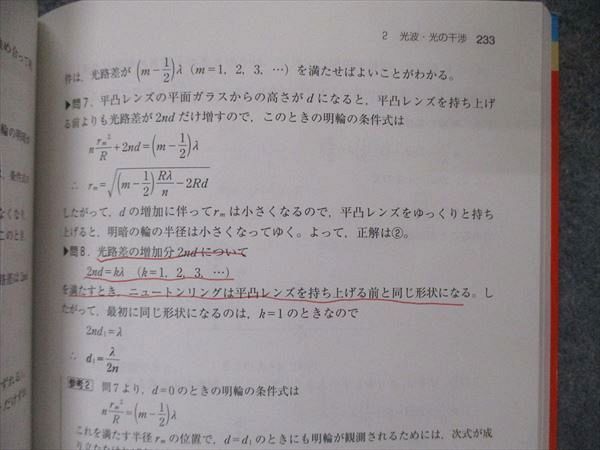 2 光波・光の干渉 233
件は，光路差が(m−1/2)λ（m=1，2，3，…）を満たせばよいことがわかる。
▶問7．平凸レンズの平面ガラスからの高さが d になると，平凸レンズを持ち上げ
る前よりも光路差が 2nd だけ増すので，このときの明輪の条件式は
n r_m²/R + 2nd = (m−1/2)λ
∴ r_m = √((m−1/2)Rλ/n − 2Rd)
したがって，d の増加に伴って r_m は小さくなるので，平凸レンズをゆっくりと持ち
上げると，明暗の輪の半径は小さくなってゆく。よって，正解は②。
▶問8．光路差の増加分 2nd について
2nd=kλ （k=1，2，3，…）
を満たすとき，ニュートンリングは平凸レンズを持ち上げる前と同じ形状になる。し
たがって，最初に同じ形状になるのは，k=1 のときなので
2nd₁=λ
∴ d₁=λ/2n
参考2 問7より，d=0 のときの明輪の条件式は
n r_m²/R = (m−1/2)λ
これを満たす半径 r_m の位置で，d=d₁ のときにも明輪が観測されるためには，次式が成